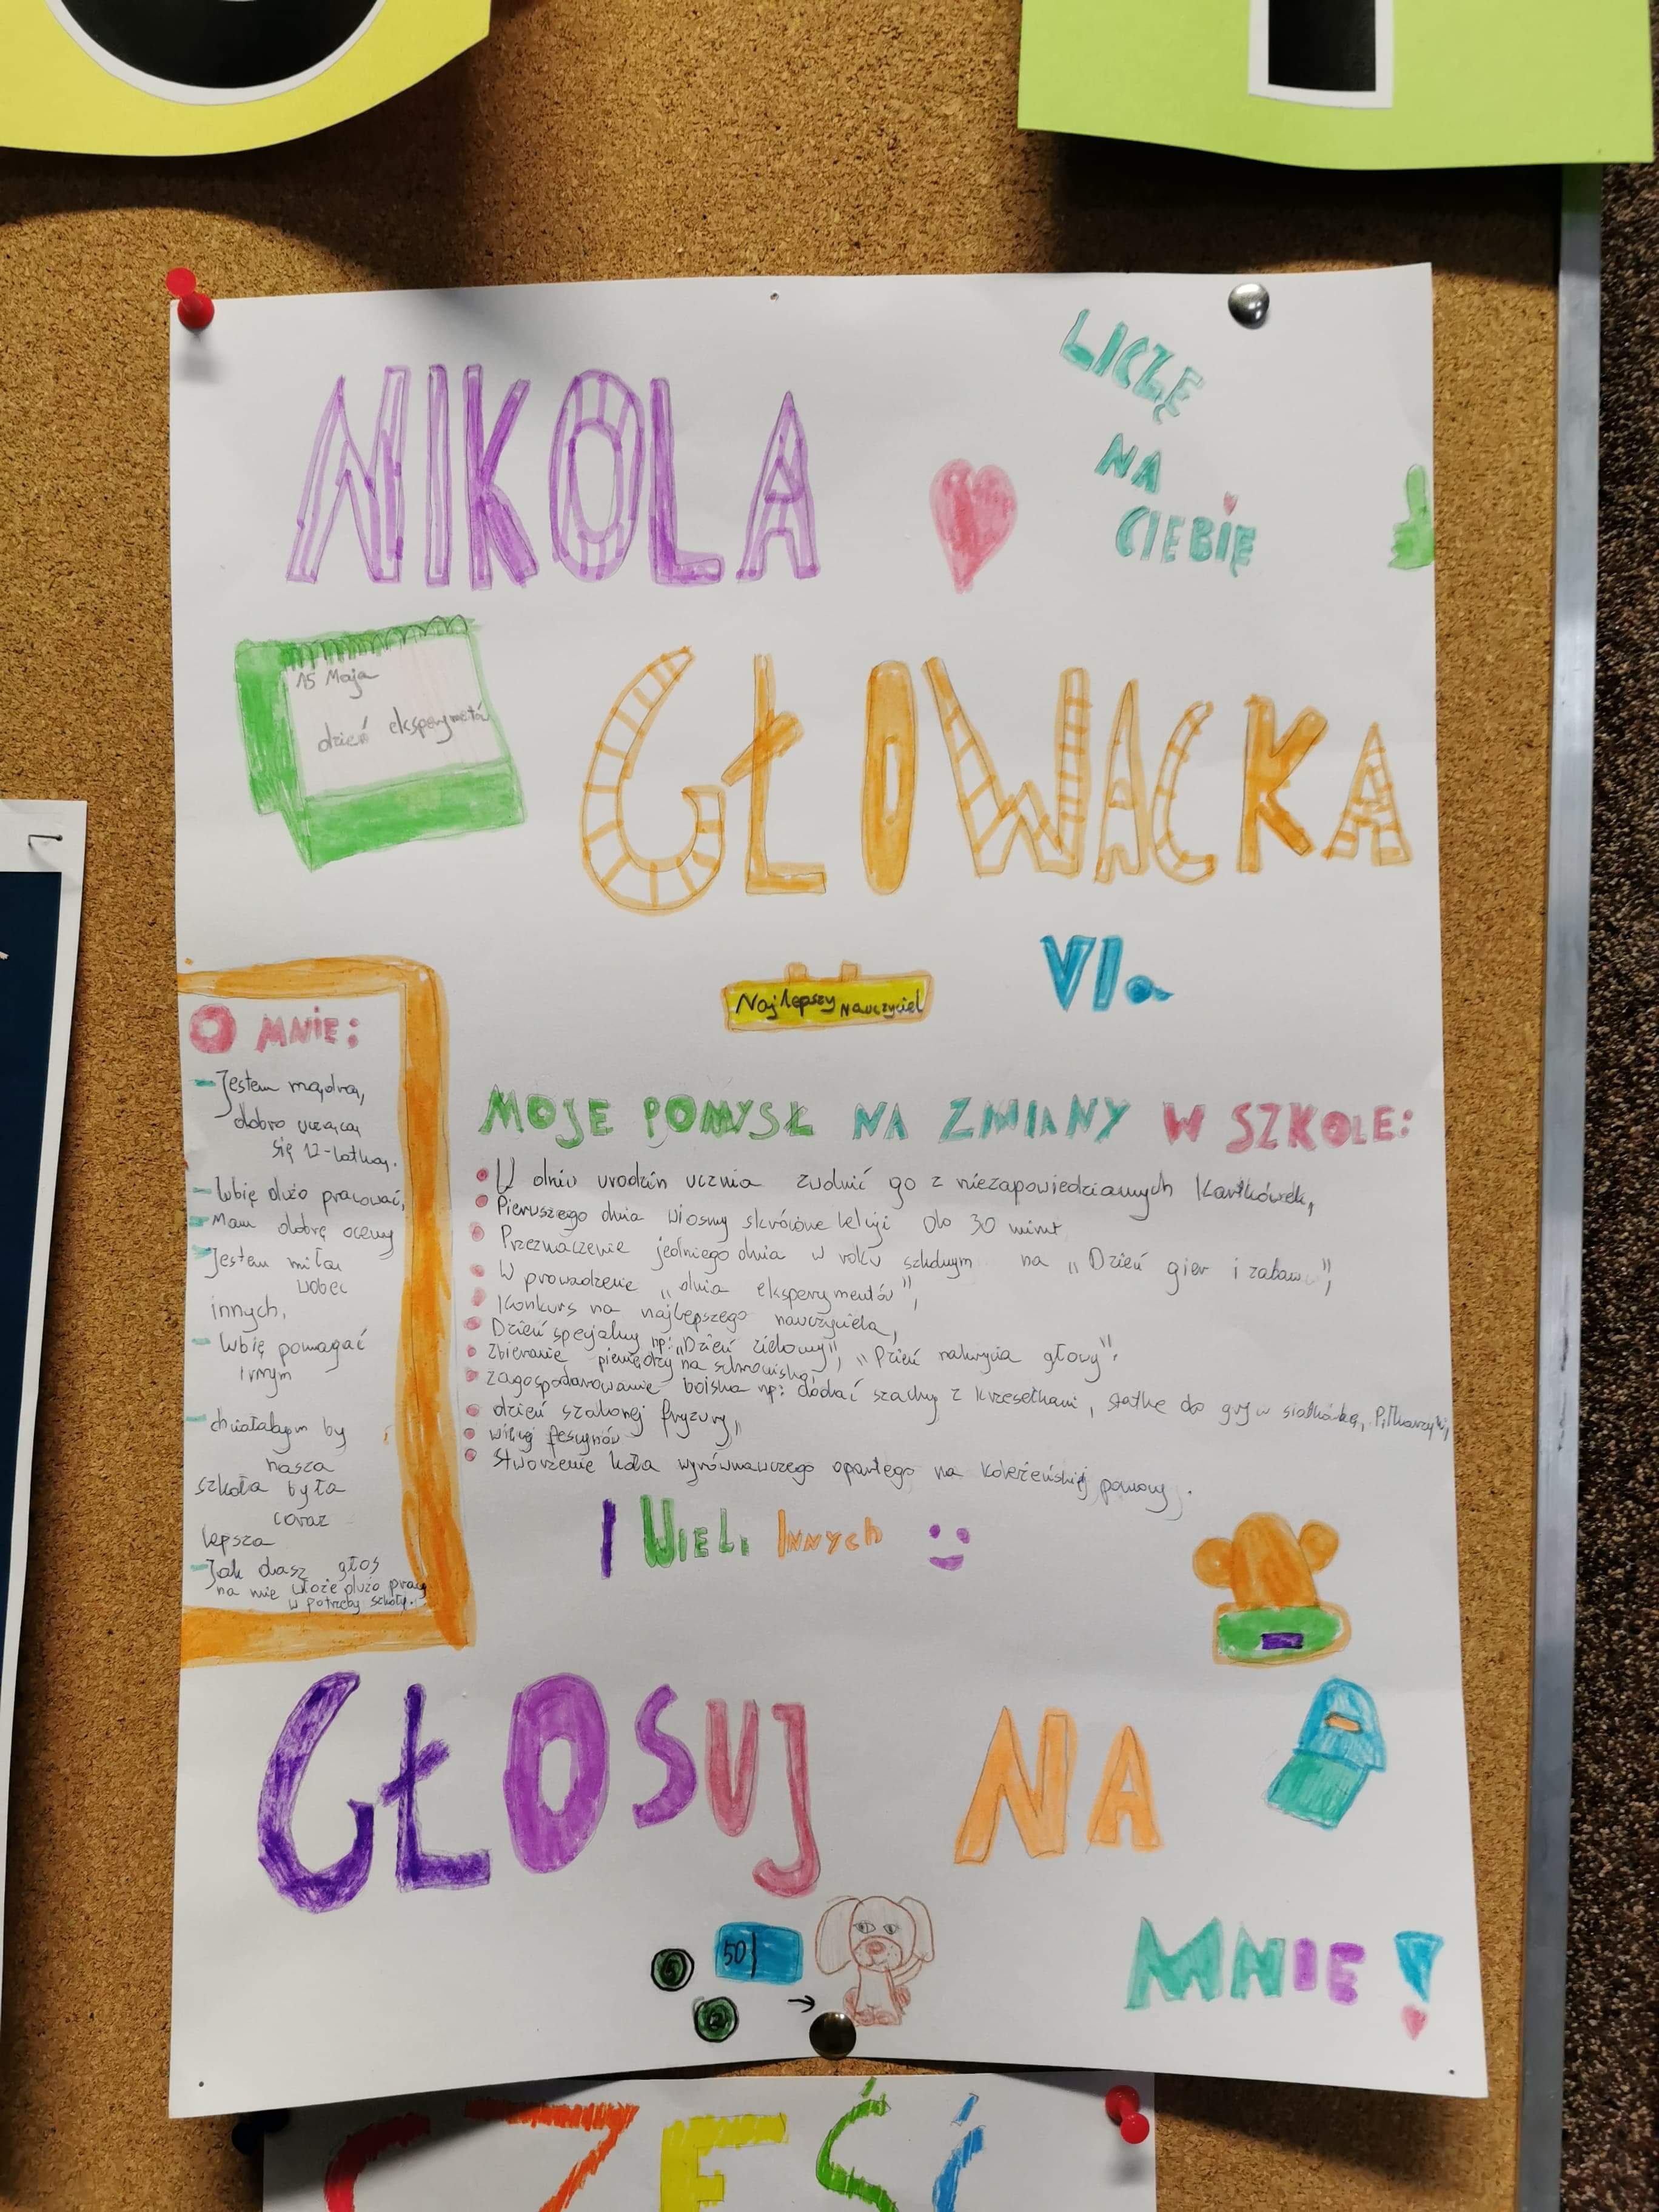 NIKOLA
LICZĘ
NA
CIEBIĘ
15 Maja
dzień eksperymetów
GŁOWACKA
VIa
Najlepszy nauczyciel
O MNIE:
- Jestem mądrą,
dobrą uczącą
się 12-latką.
- lubię dużo pracować,
- Mam dobrę oceny
- Jestem miła
wobec
innych,
- lubię pomagać
innym
- chciałabym by
nasza
szkoła była
coraz
lepsza
- Jak dasz głos
na mnie włożę dużo pracy
w potrzeby szkoły.
MOJE POMYSŁ NA ZMIANY W SZKOLE:
• W dniu urodzin ucznia zwolnić go z niezapowiedzianych kartkówek,
• Pierwszego dnia wiosny skrócone lekcji do 30 minut
• Przeznaczenie jedniego dnia w roku szkolnym na „Dzień gier i zabaw",
• W prowadzenie „dnia eksperymentów",
• Konkurs na najlepszego nauczyciela,
• Dzień specjalny np: „Dzień zielowy", „Dzień nakrycia głowy".
• Zbieranie pieniędzy na schronisko,
• zagospodarowanie boiska np: dodać szachy z krzesełkami, siatkę do gry w siatkówkę, Piłkarzyki,
• dzień szalonej fryzury,"
• więcej festynów
• Stworzenie koła wyrównawczego opartego na koleżeńskiej pomocy.
I WIELE INNYCH
GŁOSUJ NA
MNIE!
50
5
2
CZEŚĆ